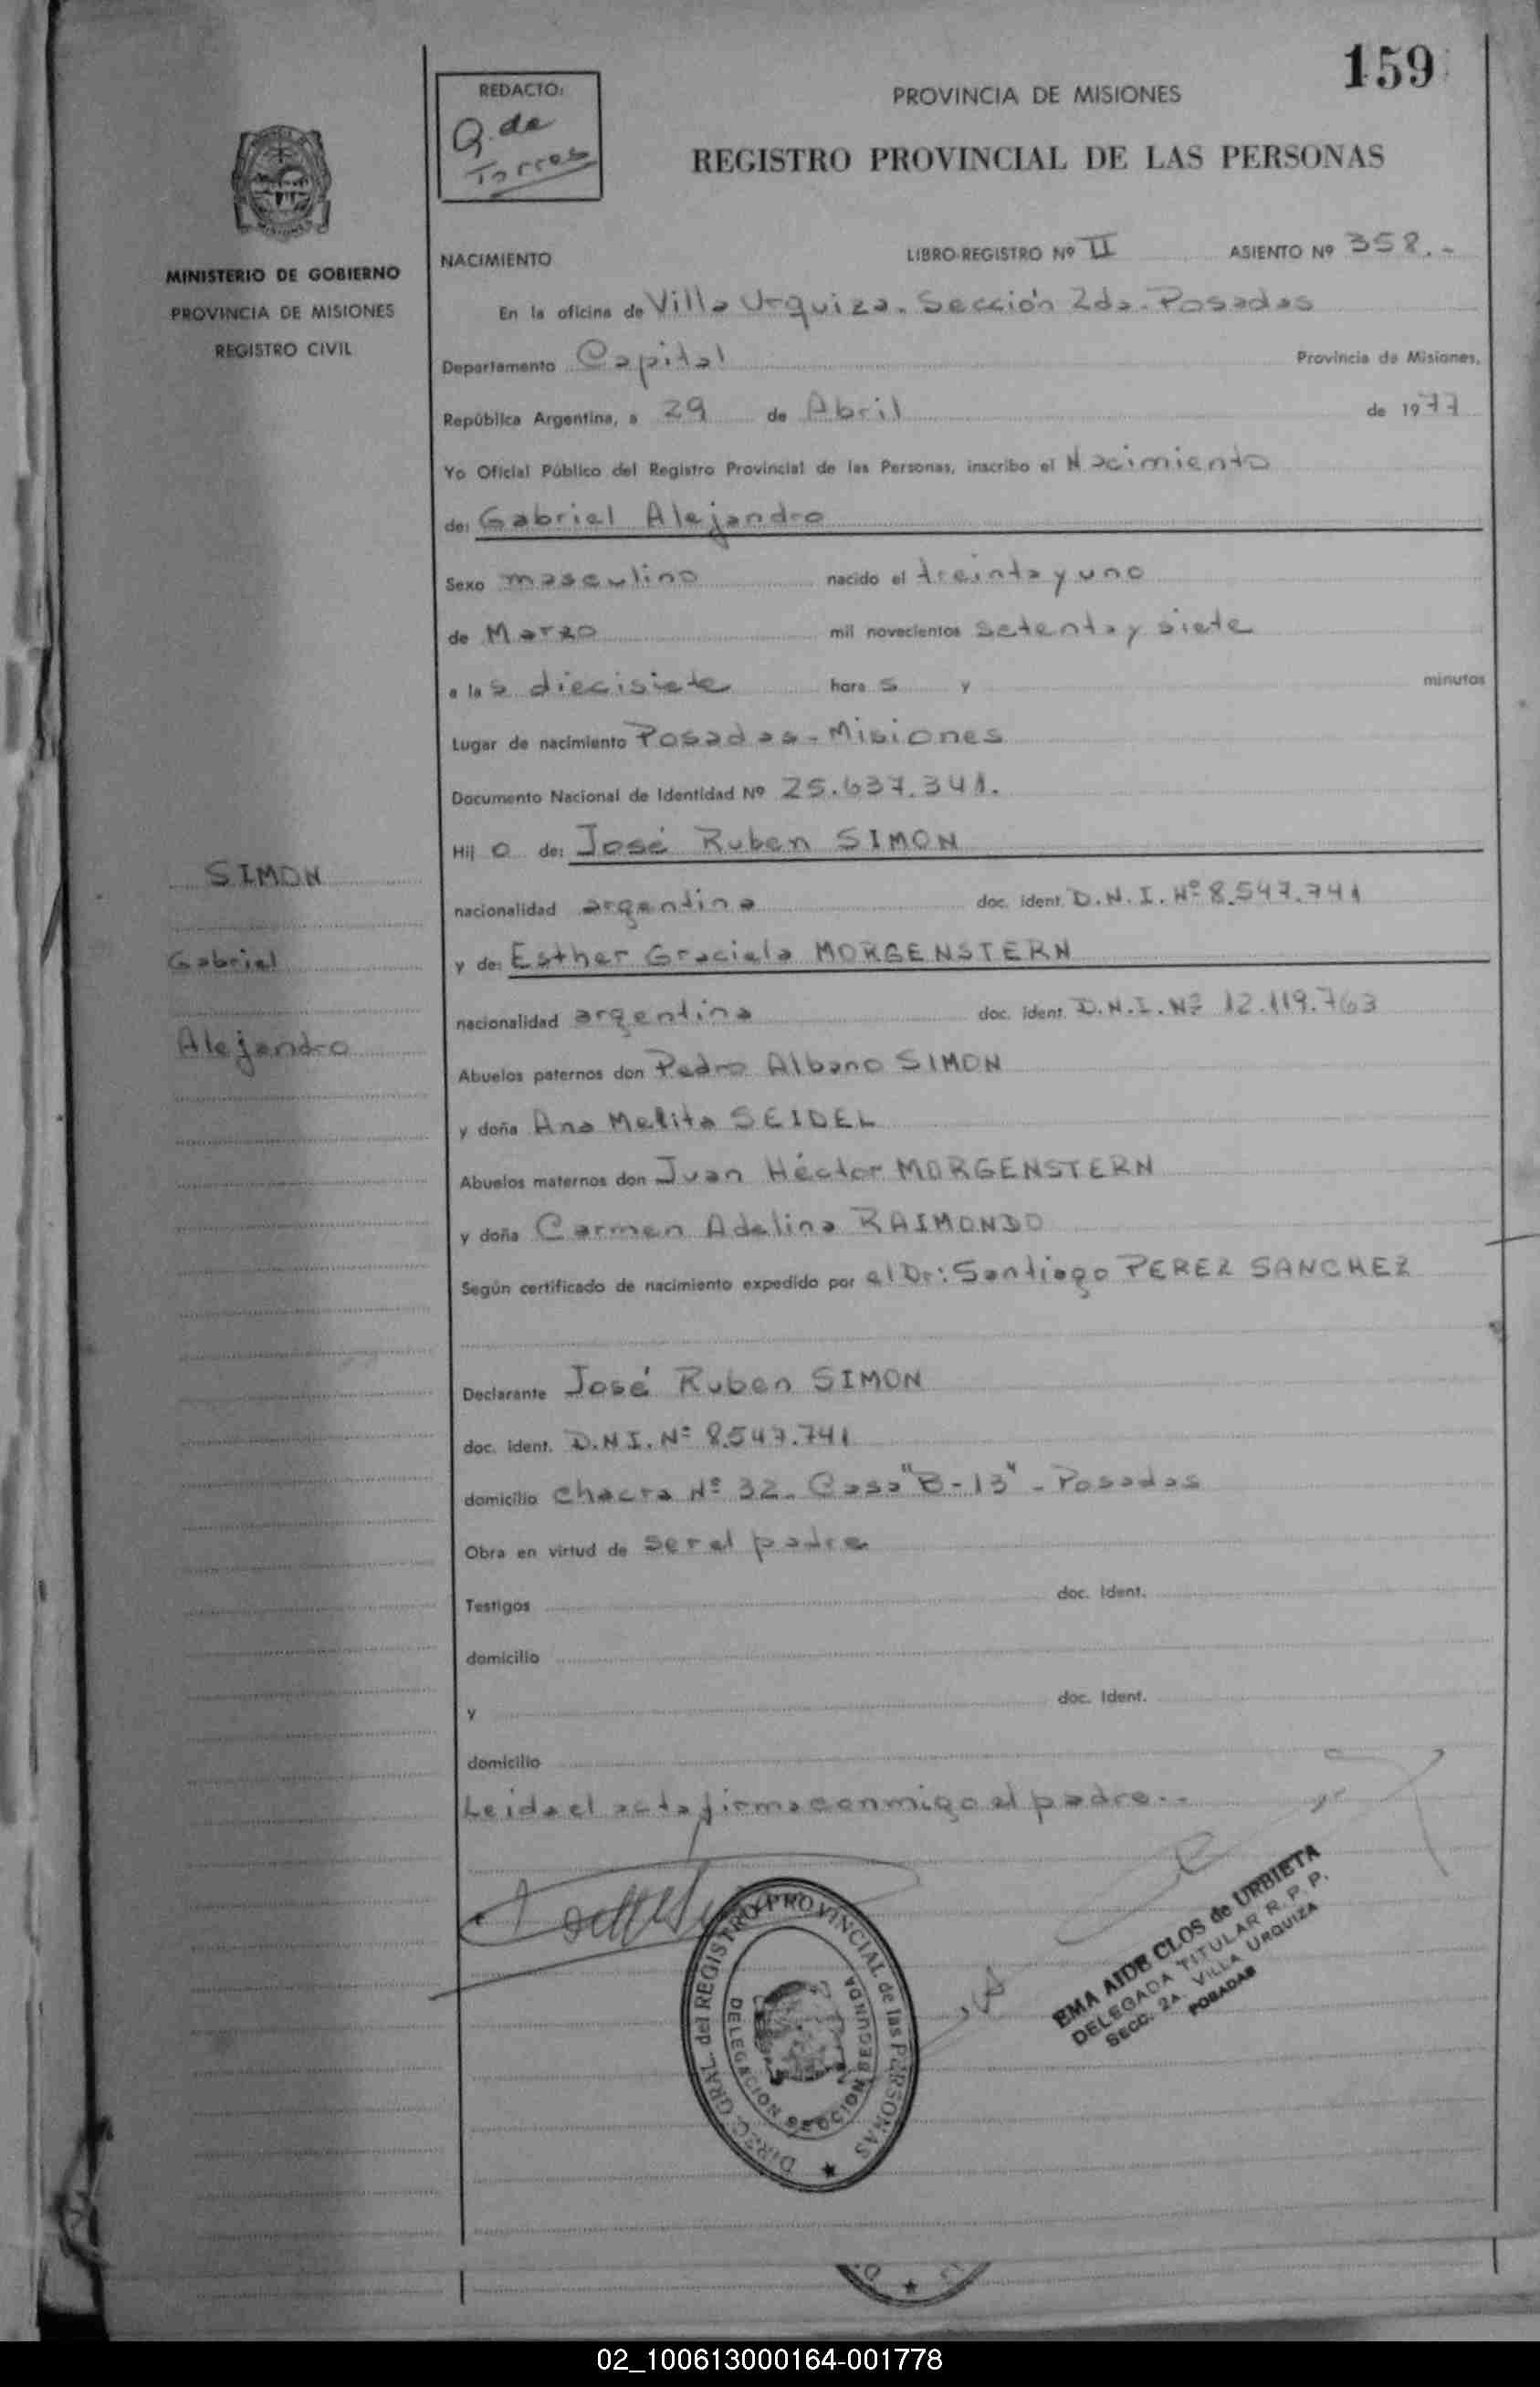 159
REDACTO:
Q. de
Torres
PROVINCIA DE MISIONES
REGISTRO PROVINCIAL DE LAS PERSONAS
MINISTERIO DE GOBIERNO
PROVINCIA DE MISIONES
REGISTRO CIVIL
NACIMIENTO LIBRO-REGISTRO Nº II ASIENTO Nº 358.-
En la oficina de Villa Urquiza. Sección 2da. Posadas
Departamento Capital Provincia de Misiones,
República Argentina, a 29 de Abril de 1977
Yo Oficial Público del Registro Provincial de las Personas, inscribo el Nacimiento
de: Gabriel Alejandro
Sexo masculino nacido el treinta y uno
de Marzo mil novecientos setenta y siete
a las diecisiete horas y minutos
Lugar de nacimiento Posadas - Misiones
Documento Nacional de Identidad Nº 25.637.341.
Hijo de: José Ruben SIMON
nacionalidad argentina doc. ident. D.N.I. Nº 8.547.741
y de: Esther Graciela MORGENSTERN
nacionalidad argentina doc. ident. D.N.I. Nº 12.119.763
Abuelos paternos don Pedro Albano SIMON
y doña Ana Melita SEIDEL
Abuelos maternos don Juan Héctor MORGENSTERN
y doña Carmen Adelina RAIMONDO
Según certificado de nacimiento expedido por el Dr: Santiago PEREZ SANCHEZ
Declarante José Ruben SIMON
doc. ident. D.N.I. Nº 8.547.741
domicilio Chacra Nº 32. Casa "B-13" - Posadas
Obra en virtud de ser el padre
Testigos doc. Ident.
domicilio
y doc. Ident.
domicilio
Leida el acta firma conmigo el padre..
SIMON
Gabriel
Alejandro
DIREC. GRAL. del REGISTRO PROVINCIAL de las PERSONAS
DELEGACION SECCION SEGUNDA
EMA AIDE CLOS de URBIETA
DELEGADA TITULAR R. P. P.
SECC. 2A. VILLA URQUIZA
POSADAS
02_100613000164-001778